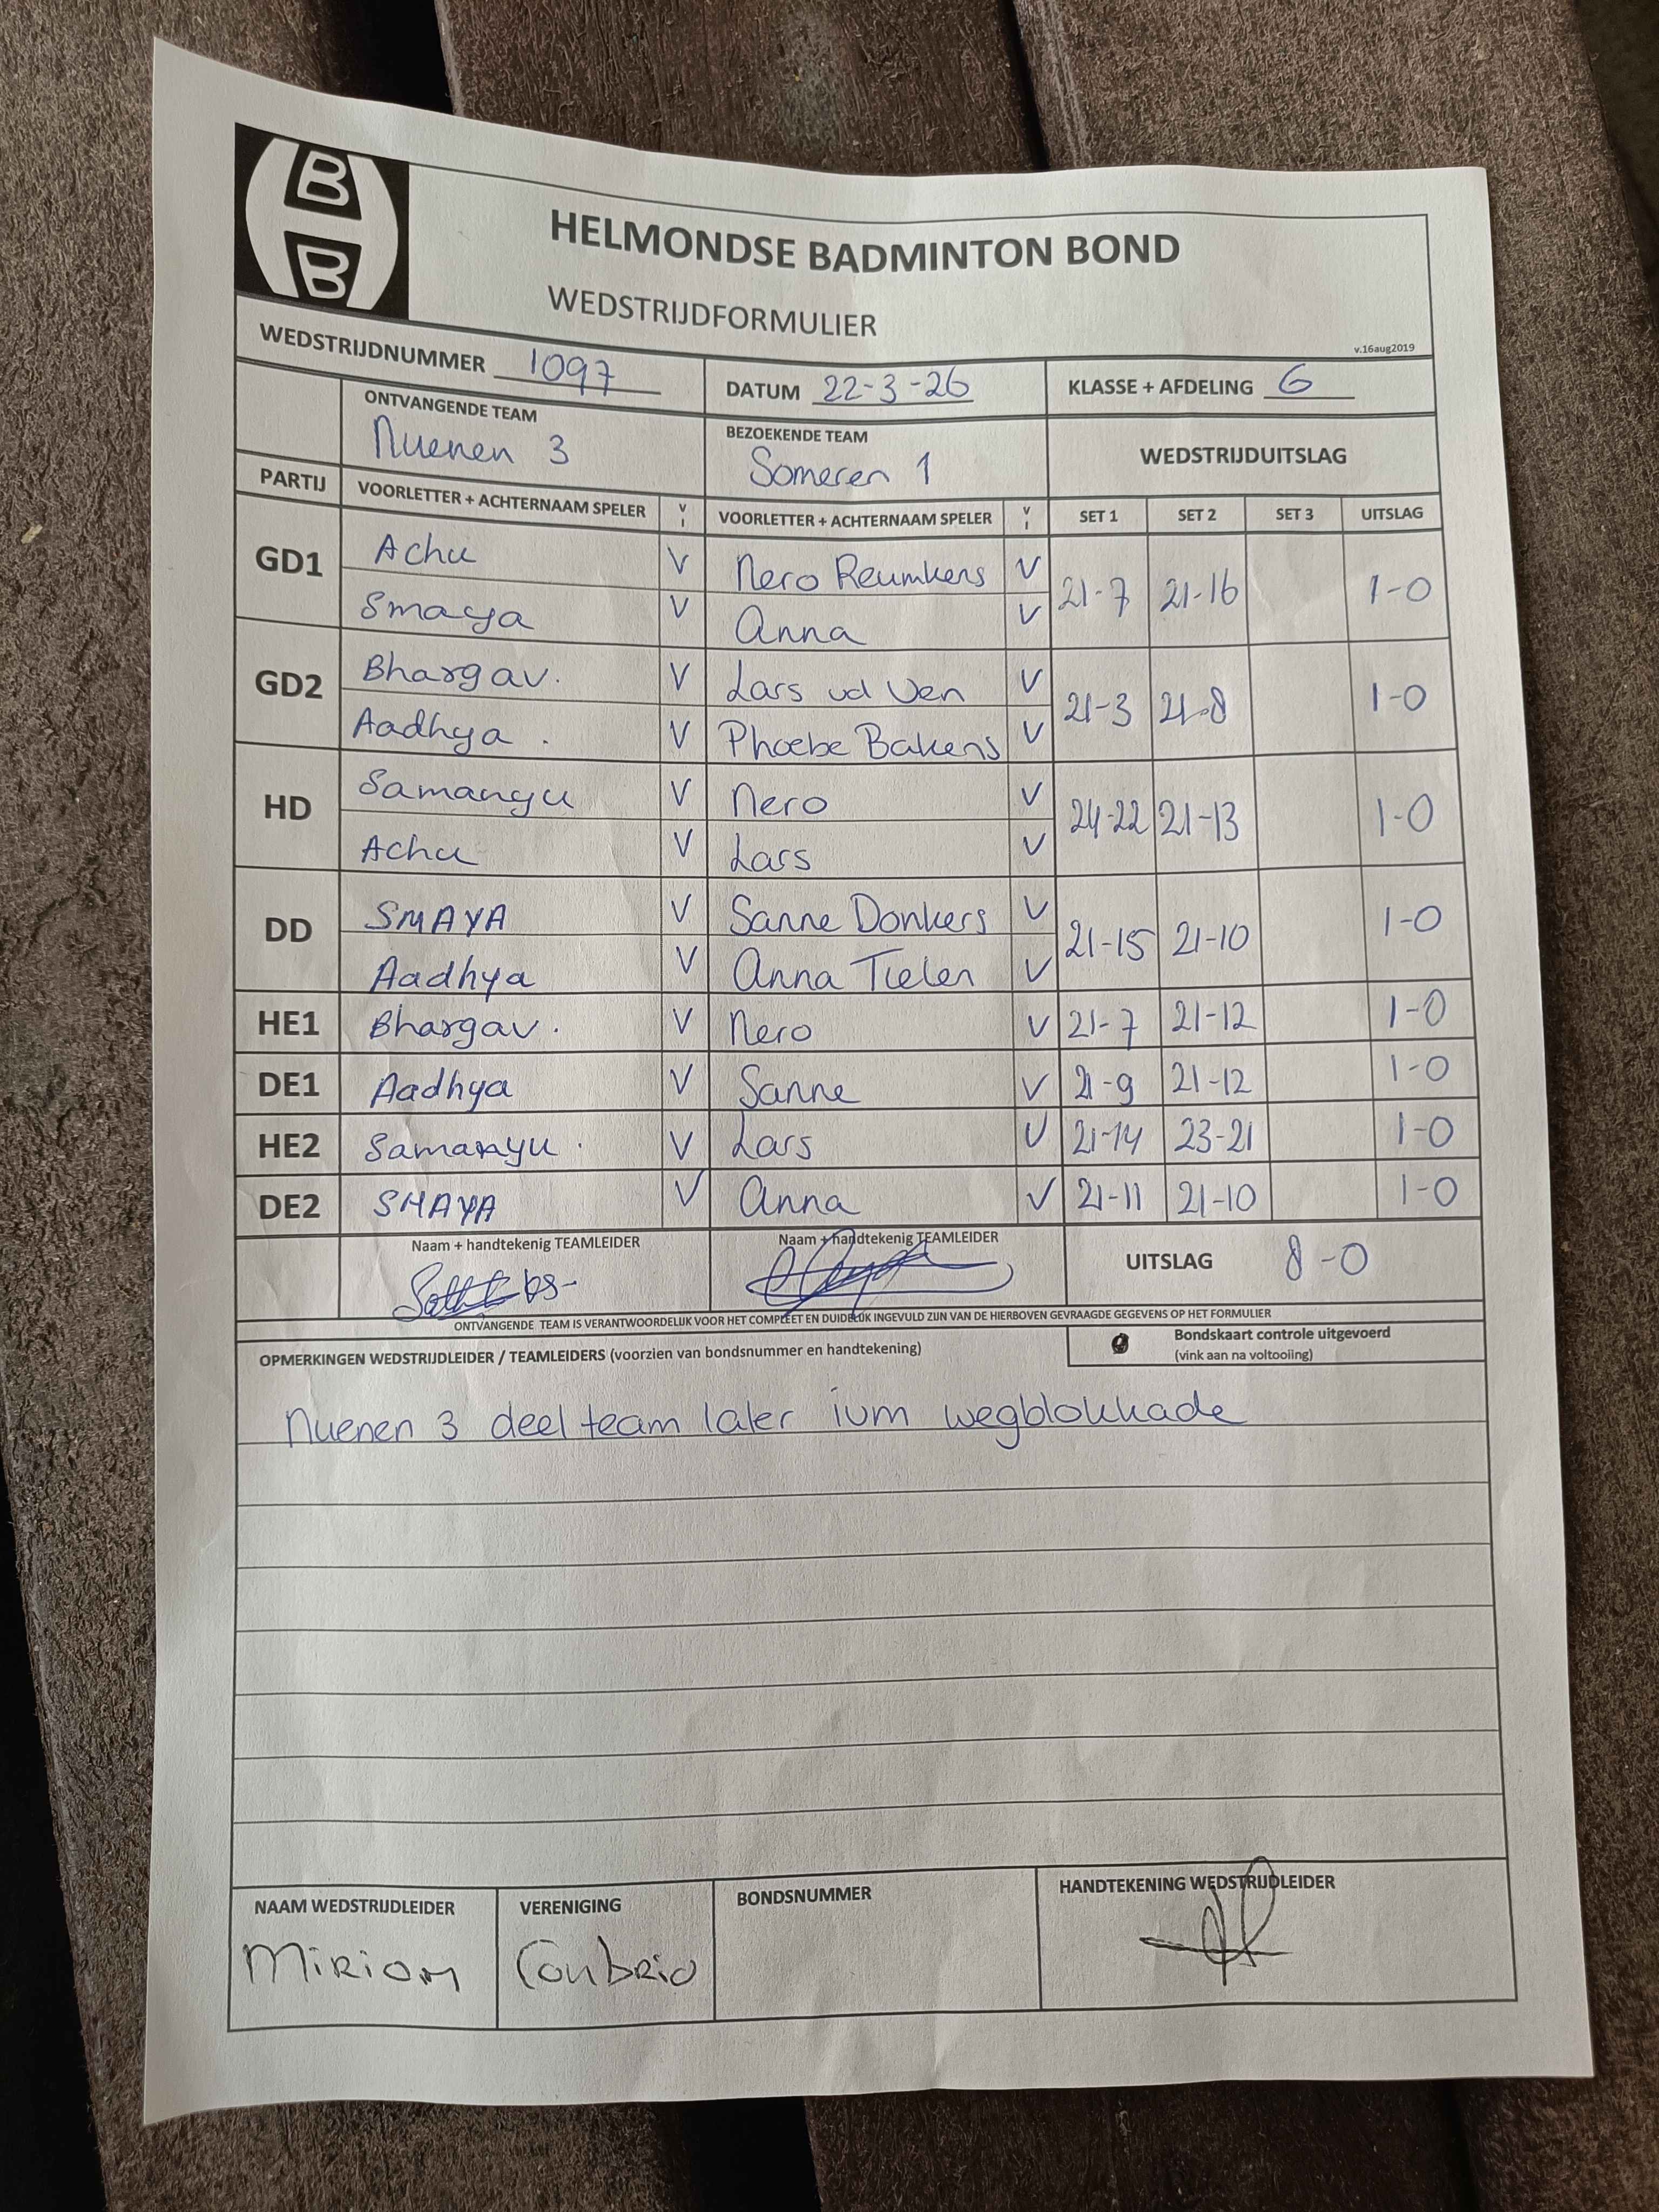 B
B
HELMONDSE BADMINTON BOND
WEDSTRIJDFORMULIER
v.16aug2019
WEDSTRIJDNUMMER 1097 DATUM 22-3-26 KLASSE + AFDELING 6
ONTVANGENDE TEAM BEZOEKENDE TEAM WEDSTRIJDUITSLAG
Nuenen 3 Someren 1
PARTIJ VOORLETTER + ACHTERNAAM SPELER V I VOORLETTER + ACHTERNAAM SPELER V I SET 1 SET 2 SET 3 UITSLAG
GD1 Achu V Nero Reumkens V 21-7 21-16 1-0
Smaya V Anna V
GD2 Bhargav. V Lars vd Ven V 21-3 21-8 1-0
Aadhya. V Phoebe Bakens V
HD Samanyu V Nero V 24-22 21-13 1-0
Achu V Lars V
DD SMAYA V Sanne Donkers V 21-15 21-10 1-0
Aadhya V Anna Tielen V
HE1 Bhargav. V Nero V 21-7 21-12 1-0
DE1 Aadhya V Sanne V 21-9 21-12 1-0
HE2 Samanyu. V Lars V 21-14 23-21 1-0
DE2 SMAYA V Anna V 21-11 21-10 1-0
Naam + handtekenig TEAMLEIDER Naam + handtekenig TEAMLEIDER UITSLAG 8-0
ONTVANGENDE TEAM IS VERANTWOORDELIJK VOOR HET COMPLEET EN DUIDELIJK INGEVULD ZIJN VAN DE HIERBOVEN GEVRAAGDE GEGEVENS OP HET FORMULIER
OPMERKINGEN WEDSTRIJDLEIDER / TEAMLEIDERS (voorzien van bondsnummer en handtekening) Bondskaart controle uitgevoerd
(vink aan na voltooiing)
Nuenen 3 deel team later ivm wegblokkade
NAAM WEDSTRIJDLEIDER VERENIGING BONDSNUMMER HANDTEKENING WEDSTRIJDLEIDER
Miriam Conbrio